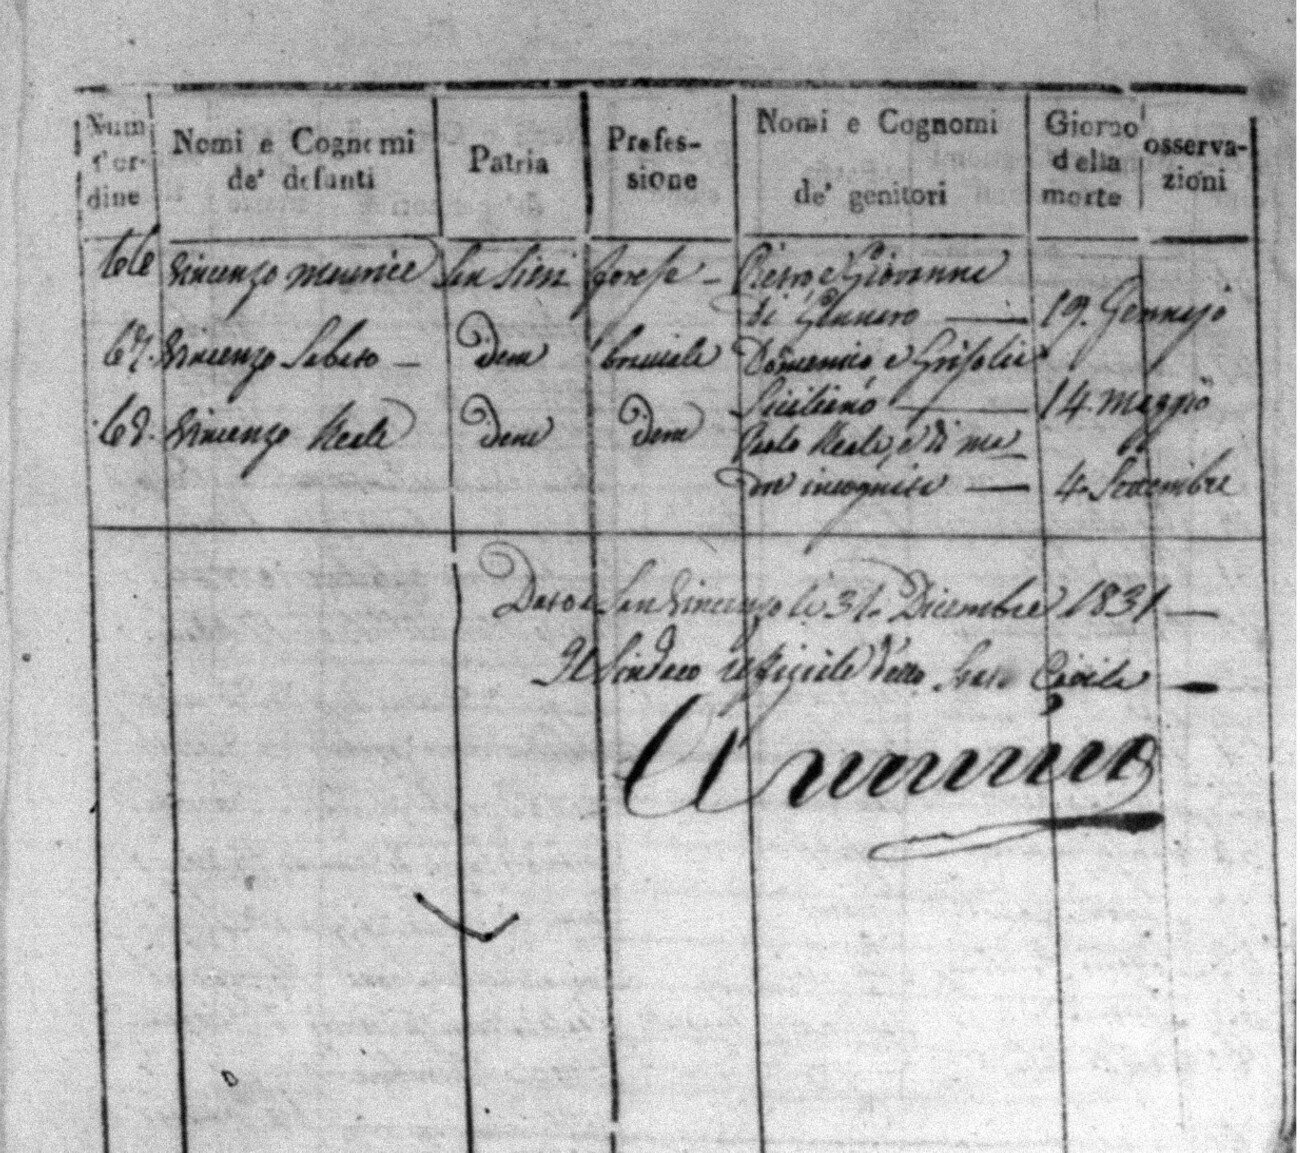 Num d'or- dine | Nomi e Cognomi de' defunti | Patria | Profes- sione | Nomi e Cognomi de' genitori | Giorno della morte | osserva- zioni
66 Vincenzo Pietro e Giovanna
di Gennaro — 19. Gennajo
67. Vincenzo Sabato — Idem bracciale Domenico e Grisolia
Siciliano — 14. Maggio
68. Vincenzo Reale Idem Idem Paolo Reale, e di ma-
dre incognita — 4. Settembre
Dato a San Vincenzo li 31. Dicembre 1831 —
Il Sindaco uffiziale dello Stato Civile —